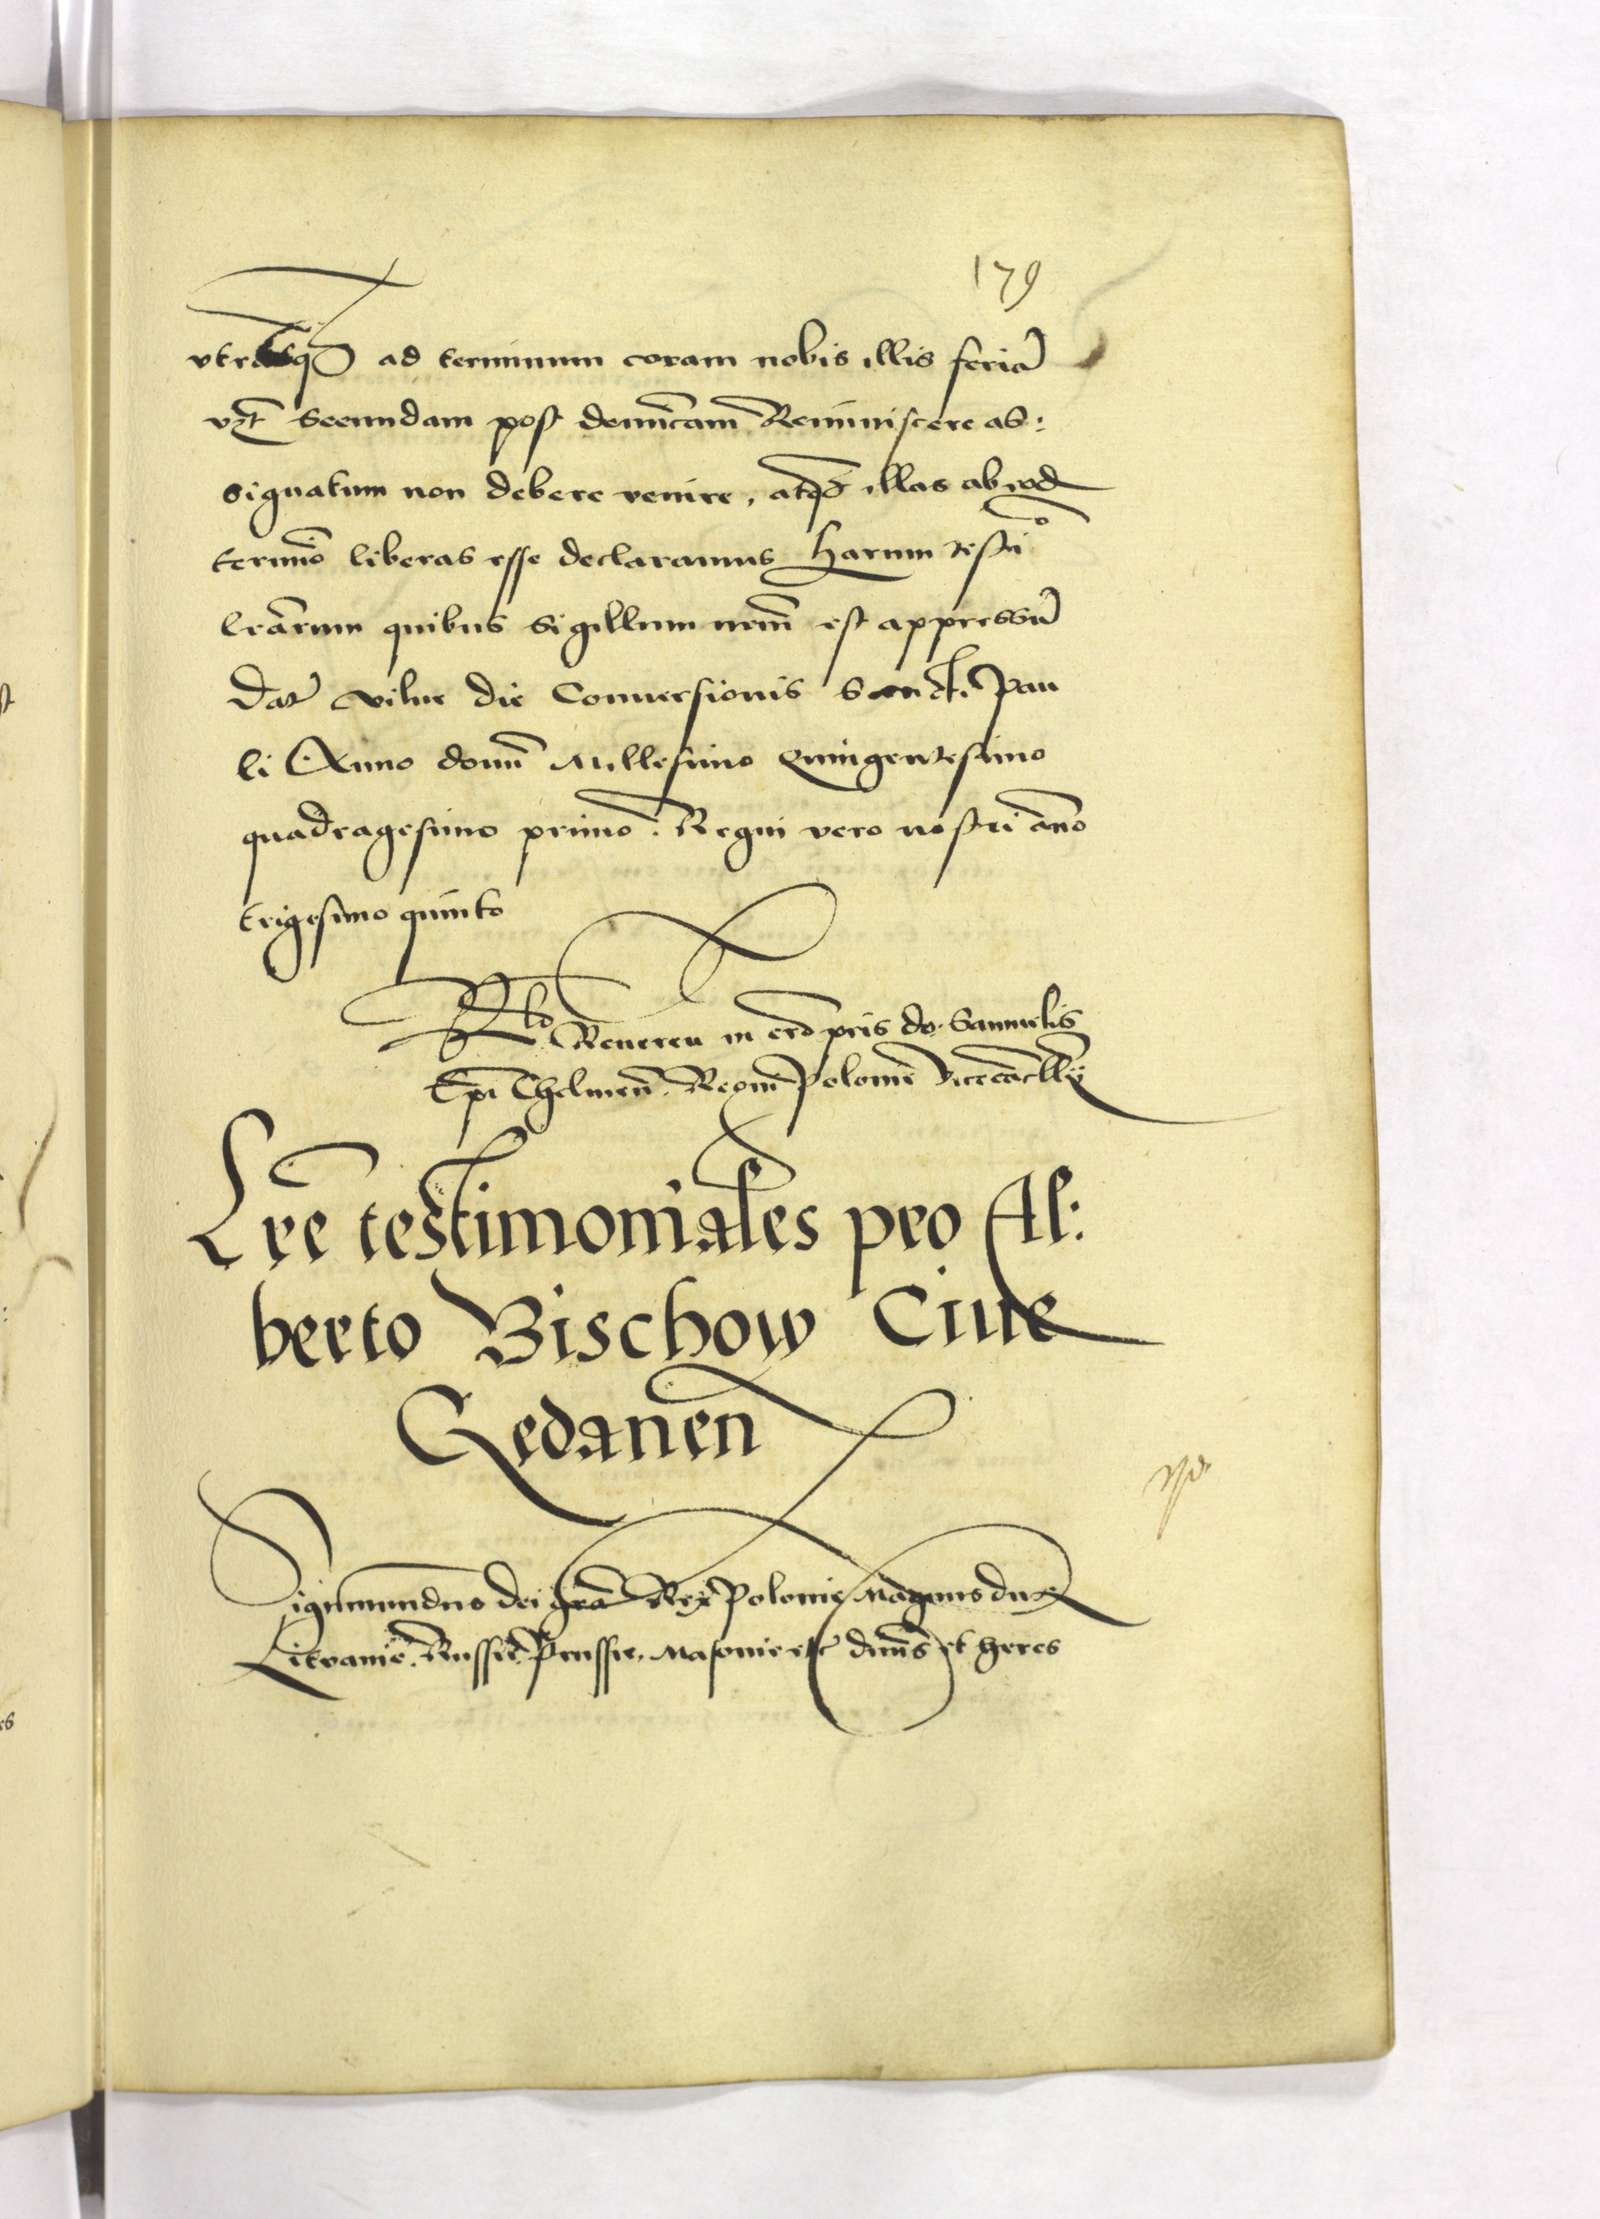 179
vtrasq ad terminum coram nobis illis feria
vzt Secundam post domicam Reminiscere as:
signatum non debere venire, atq illas ab eod
termio liberas esse declaramus harum testio
lrarum quibus sigillum nrm est appressu
Dat Vilne die Conuersionis Sancti Pau
li Anno domi Millesimo Quingentesimo
quadragesimo primo. Regni vero nostri ano
trigesimo quinto
Rlo Reueren in pris do. Samuelis
Epi Chelmen. Regni Polonie Vicecacllrij
Lre testimoniales pro Al:
berto Bischow Ciue
Gedanen
Sigismundus dei gra Rex Polonie Magnus dux
Litvanie. Russie. Prussie. Masouie etc dnus et heres